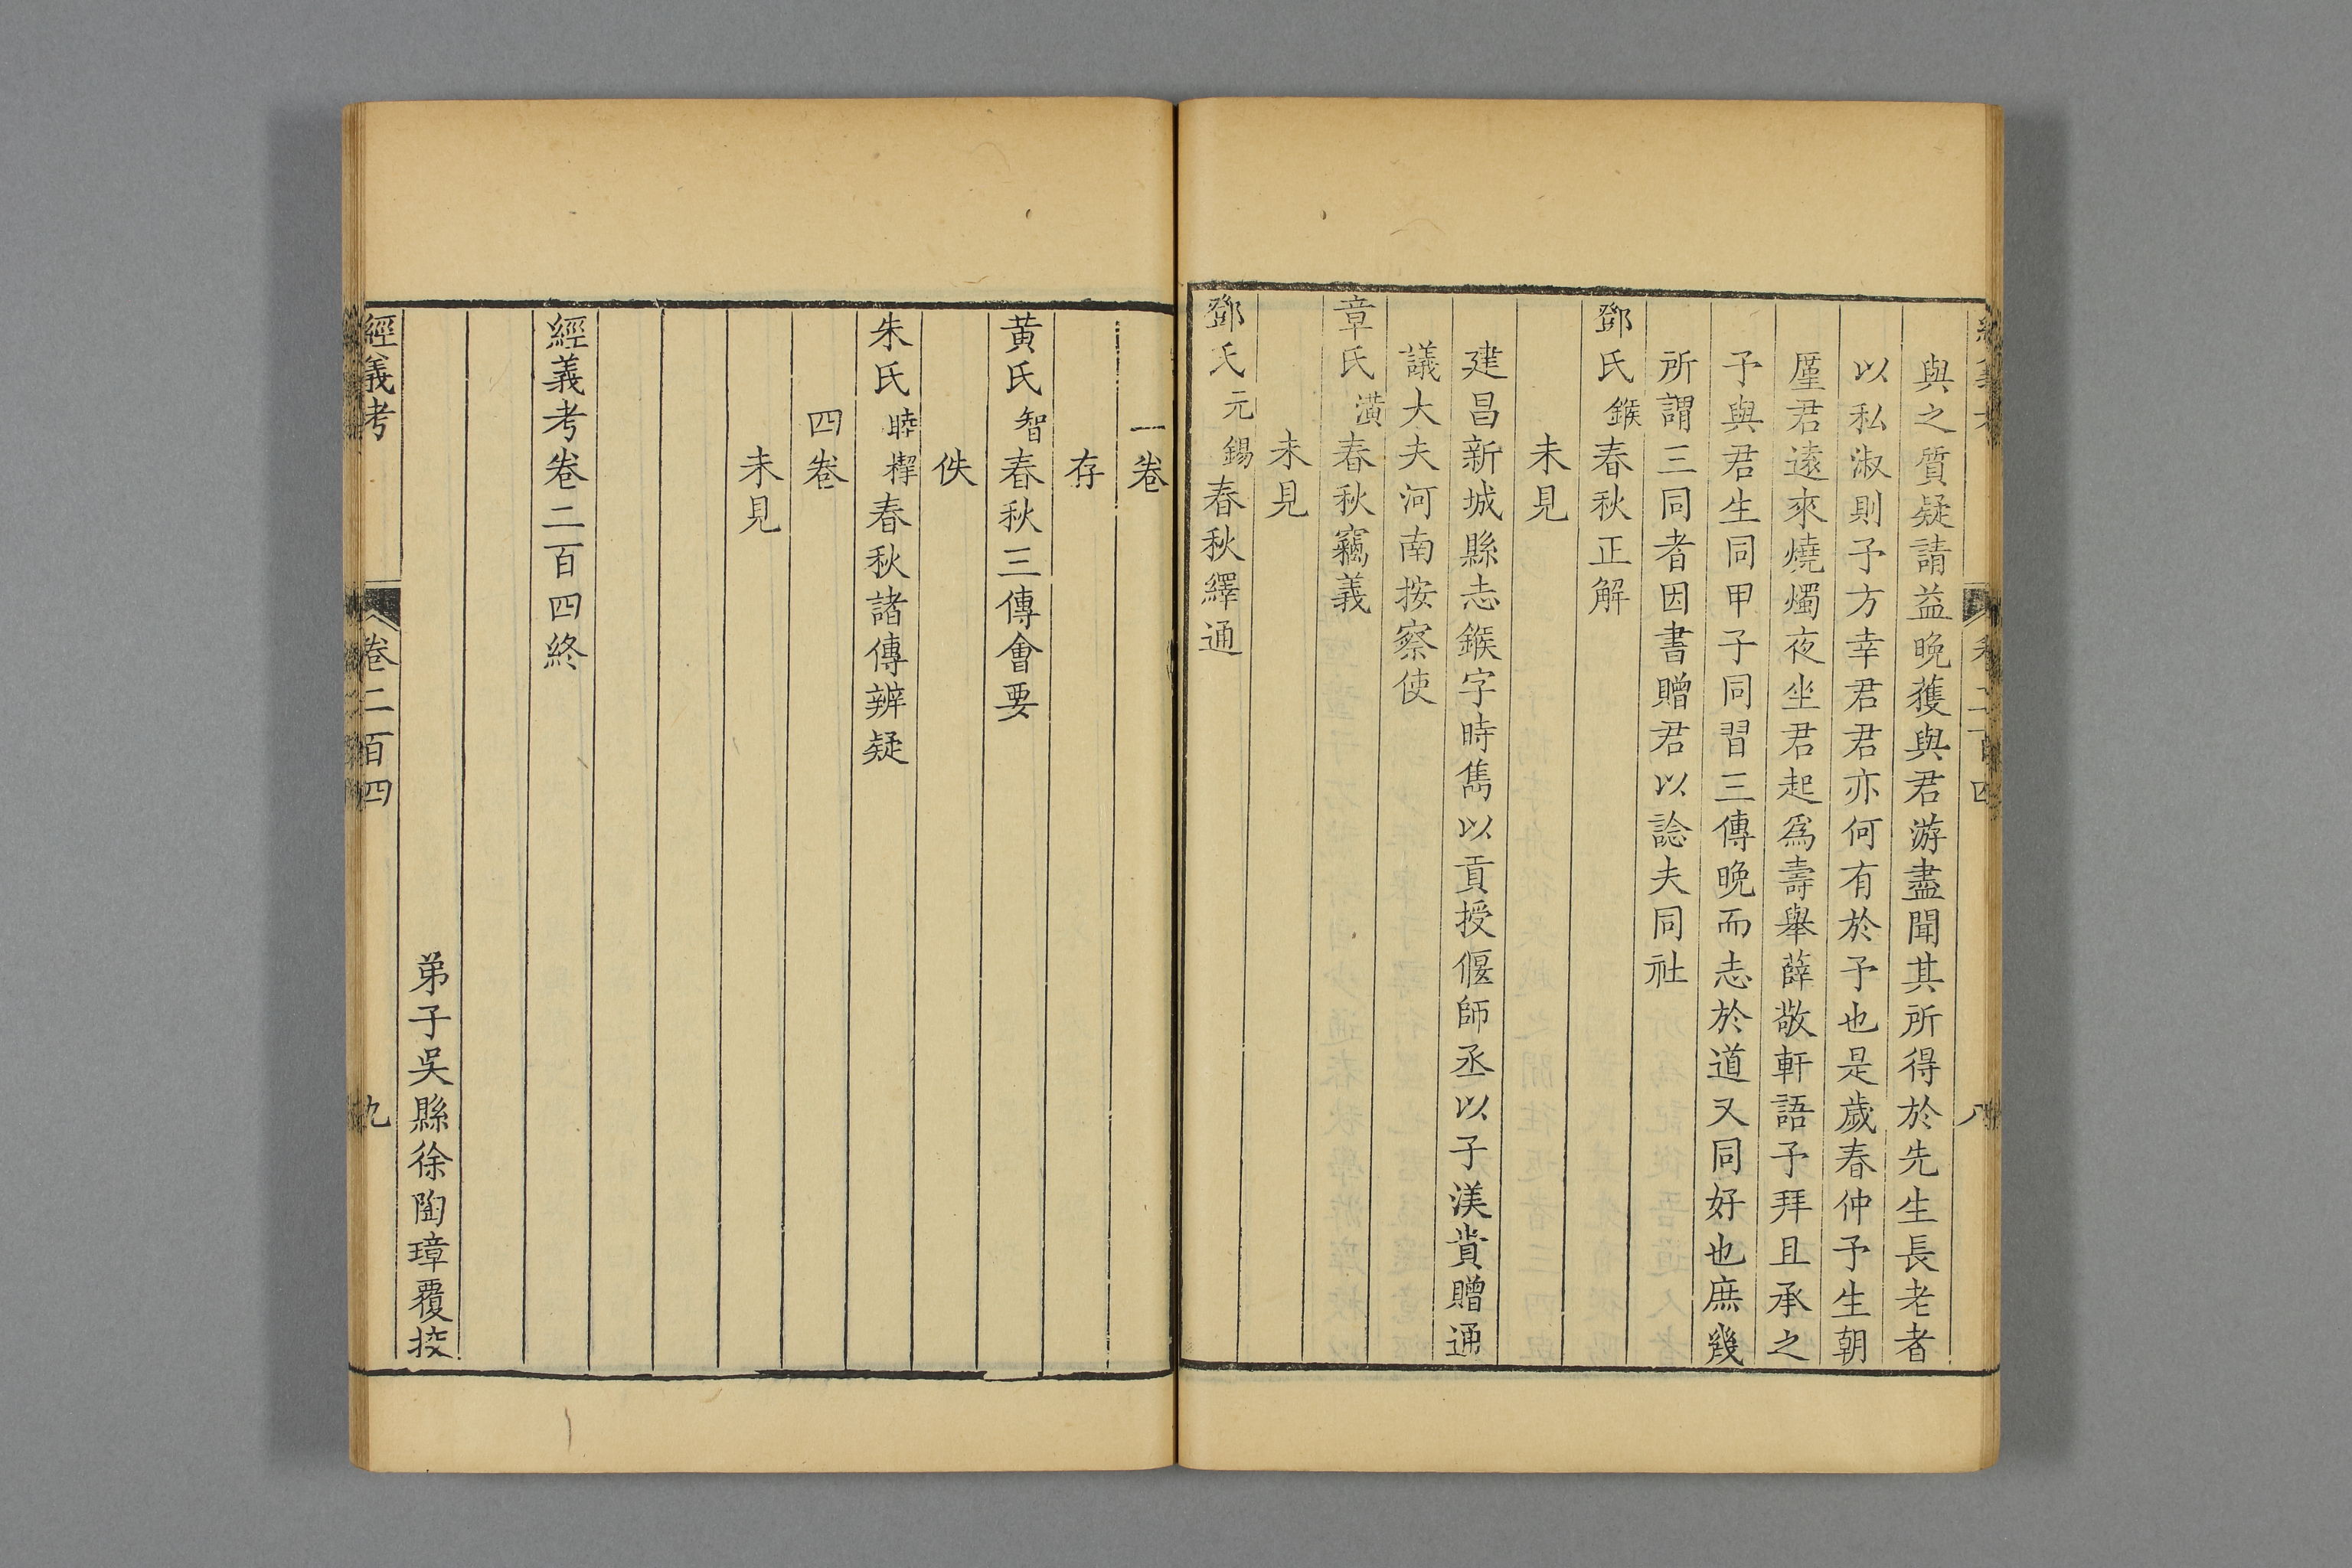 與之質疑請益晚獲與君游盡聞其所得於先生長老者
以私淑則予方幸君君亦何有於予也是歲春仲予生朝
厪君遠來燒燭夜坐君起爲壽舉薛敬軒語予拜且承之
予與君生同甲子同習三傳晚而志於道又同好也庶幾
所謂三同者因書贈君以諗夫同社
鄧氏鍭春秋正解
未見
建昌新城縣志鍭字時雋以貢授偃師丞以子渼貲贈通
議大夫河南按察使
章氏潢春秋竊義
未見
鄧氏元錫春秋繹通
一卷
存
黃氏智春秋三傳會要
佚
朱氏睦㮮春秋諸傳辨疑
四卷
未見
經義考卷二百四終
弟子吳縣徐陶璋覆挍
經義考
卷二百四
九